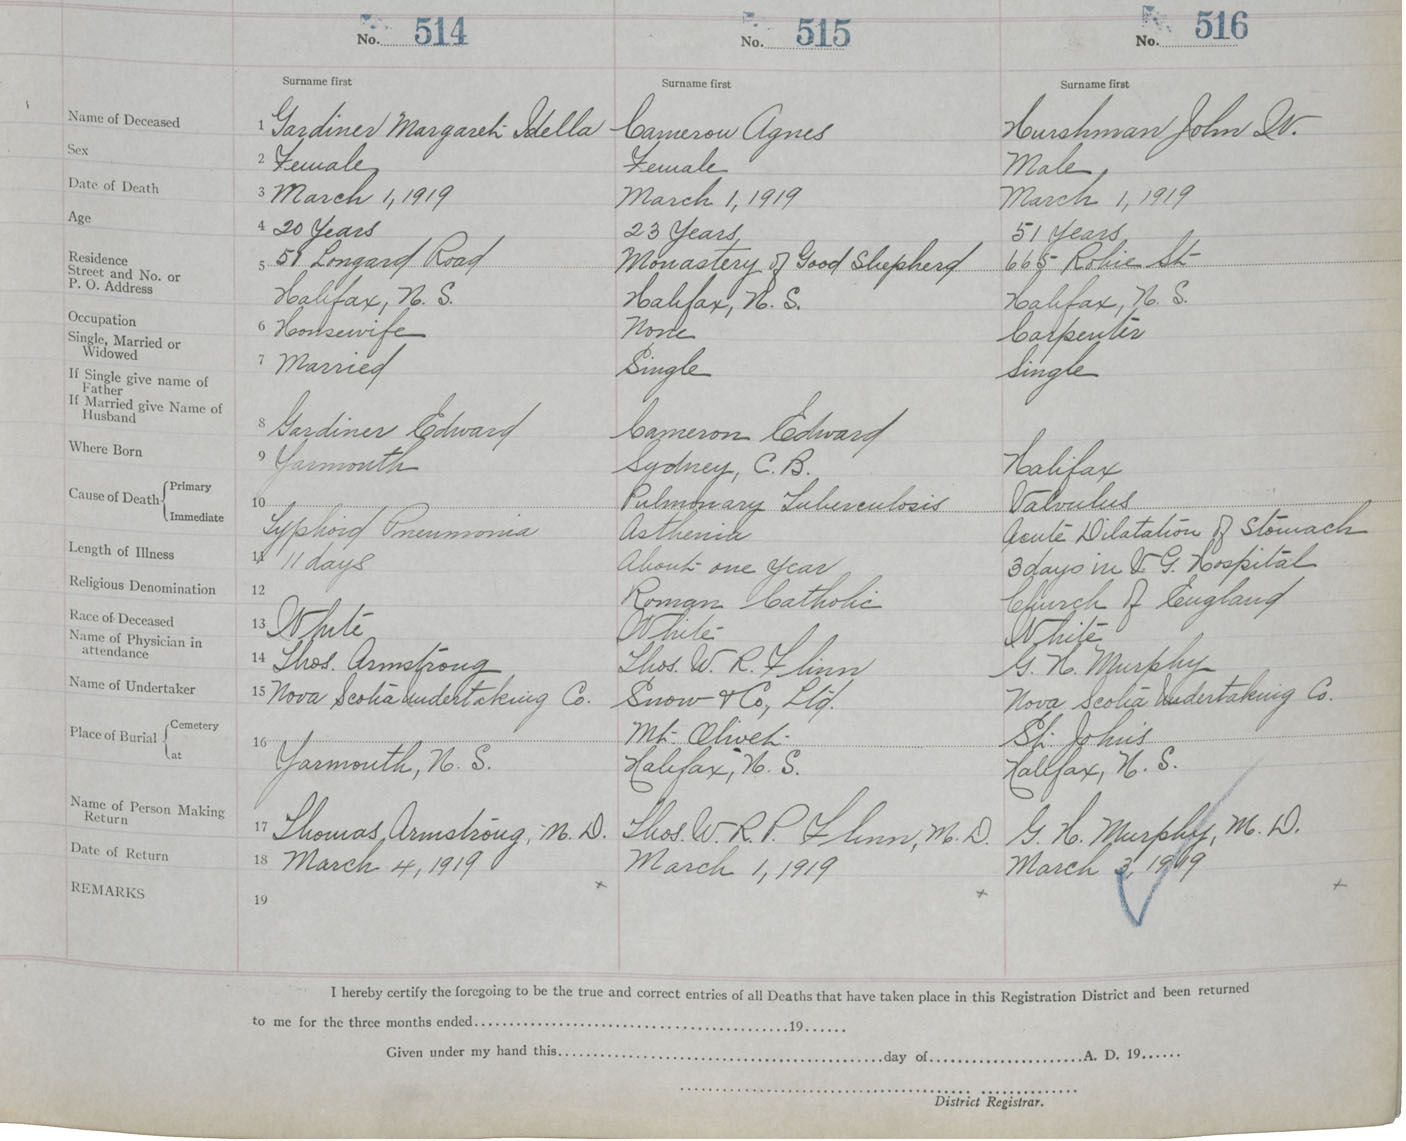 No. 514 No. 515 No. 516
Surname first Surname first Surname first
Name of Deceased 1 Gardiner Margaret Idella Cameron Agnes Hurshman John W.
Sex 2 Female Female Male
Date of Death 3 March 1, 1919 March 1, 1919 March 1, 1919
Age 4 20 Years 23 Years 51 Years
Residence
Street and No. or 5 51 Longard Road Monastery of Good Shepherd 665 Robie St
P. O. Address Halifax, N. S. Halifax, N. S. Halifax, N. S.
Occupation 6 Housewife None Carpenter
Single, Married or
Widowed 7 Married Single Single
If Single give name of
Father
If Married give Name of
Husband 8 Gardiner Edward Cameron Edward
Where Born 9 Yarmouth Sydney, C. B. Halifax
Cause of Death Primary 10 Pulmonary Tuberculosis Valvulus
Immediate Typhoid Pneumonia Asthenia Acute Dilatation of Stomach
Length of Illness 11 11 days About one year 3 days in V. G. Hospital
Religious Denomination 12 Roman Catholic Church of England
Race of Deceased 13 White White White
Name of Physician in
attendance 14 Thos. Armstrong Thos. W. R. Flinn G. H. Murphy
Name of Undertaker 15 Nova Scotia Undertaking Co. Snow & Co, Ltd. Nova Scotia Undertaking Co.
Place of Burial Cemetery 16 Mt. Olivet St. John's
at Yarmouth, N. S. Halifax, N. S. Halifax, N. S.
Name of Person Making
Return 17 Thomas Armstrong, M. D. Thos. W. R. P. Flinn, M. D. G. H. Murphy, M. D.
Date of Return 18 March 4, 1919 March 1, 1919 March 3, 1919
REMARKS 19
I hereby certify the foregoing to be the true and correct entries of all Deaths that have taken place in this Registration District and been returned
to me for the three months ended 19
Given under my hand this day of A. D. 19
District Registrar.